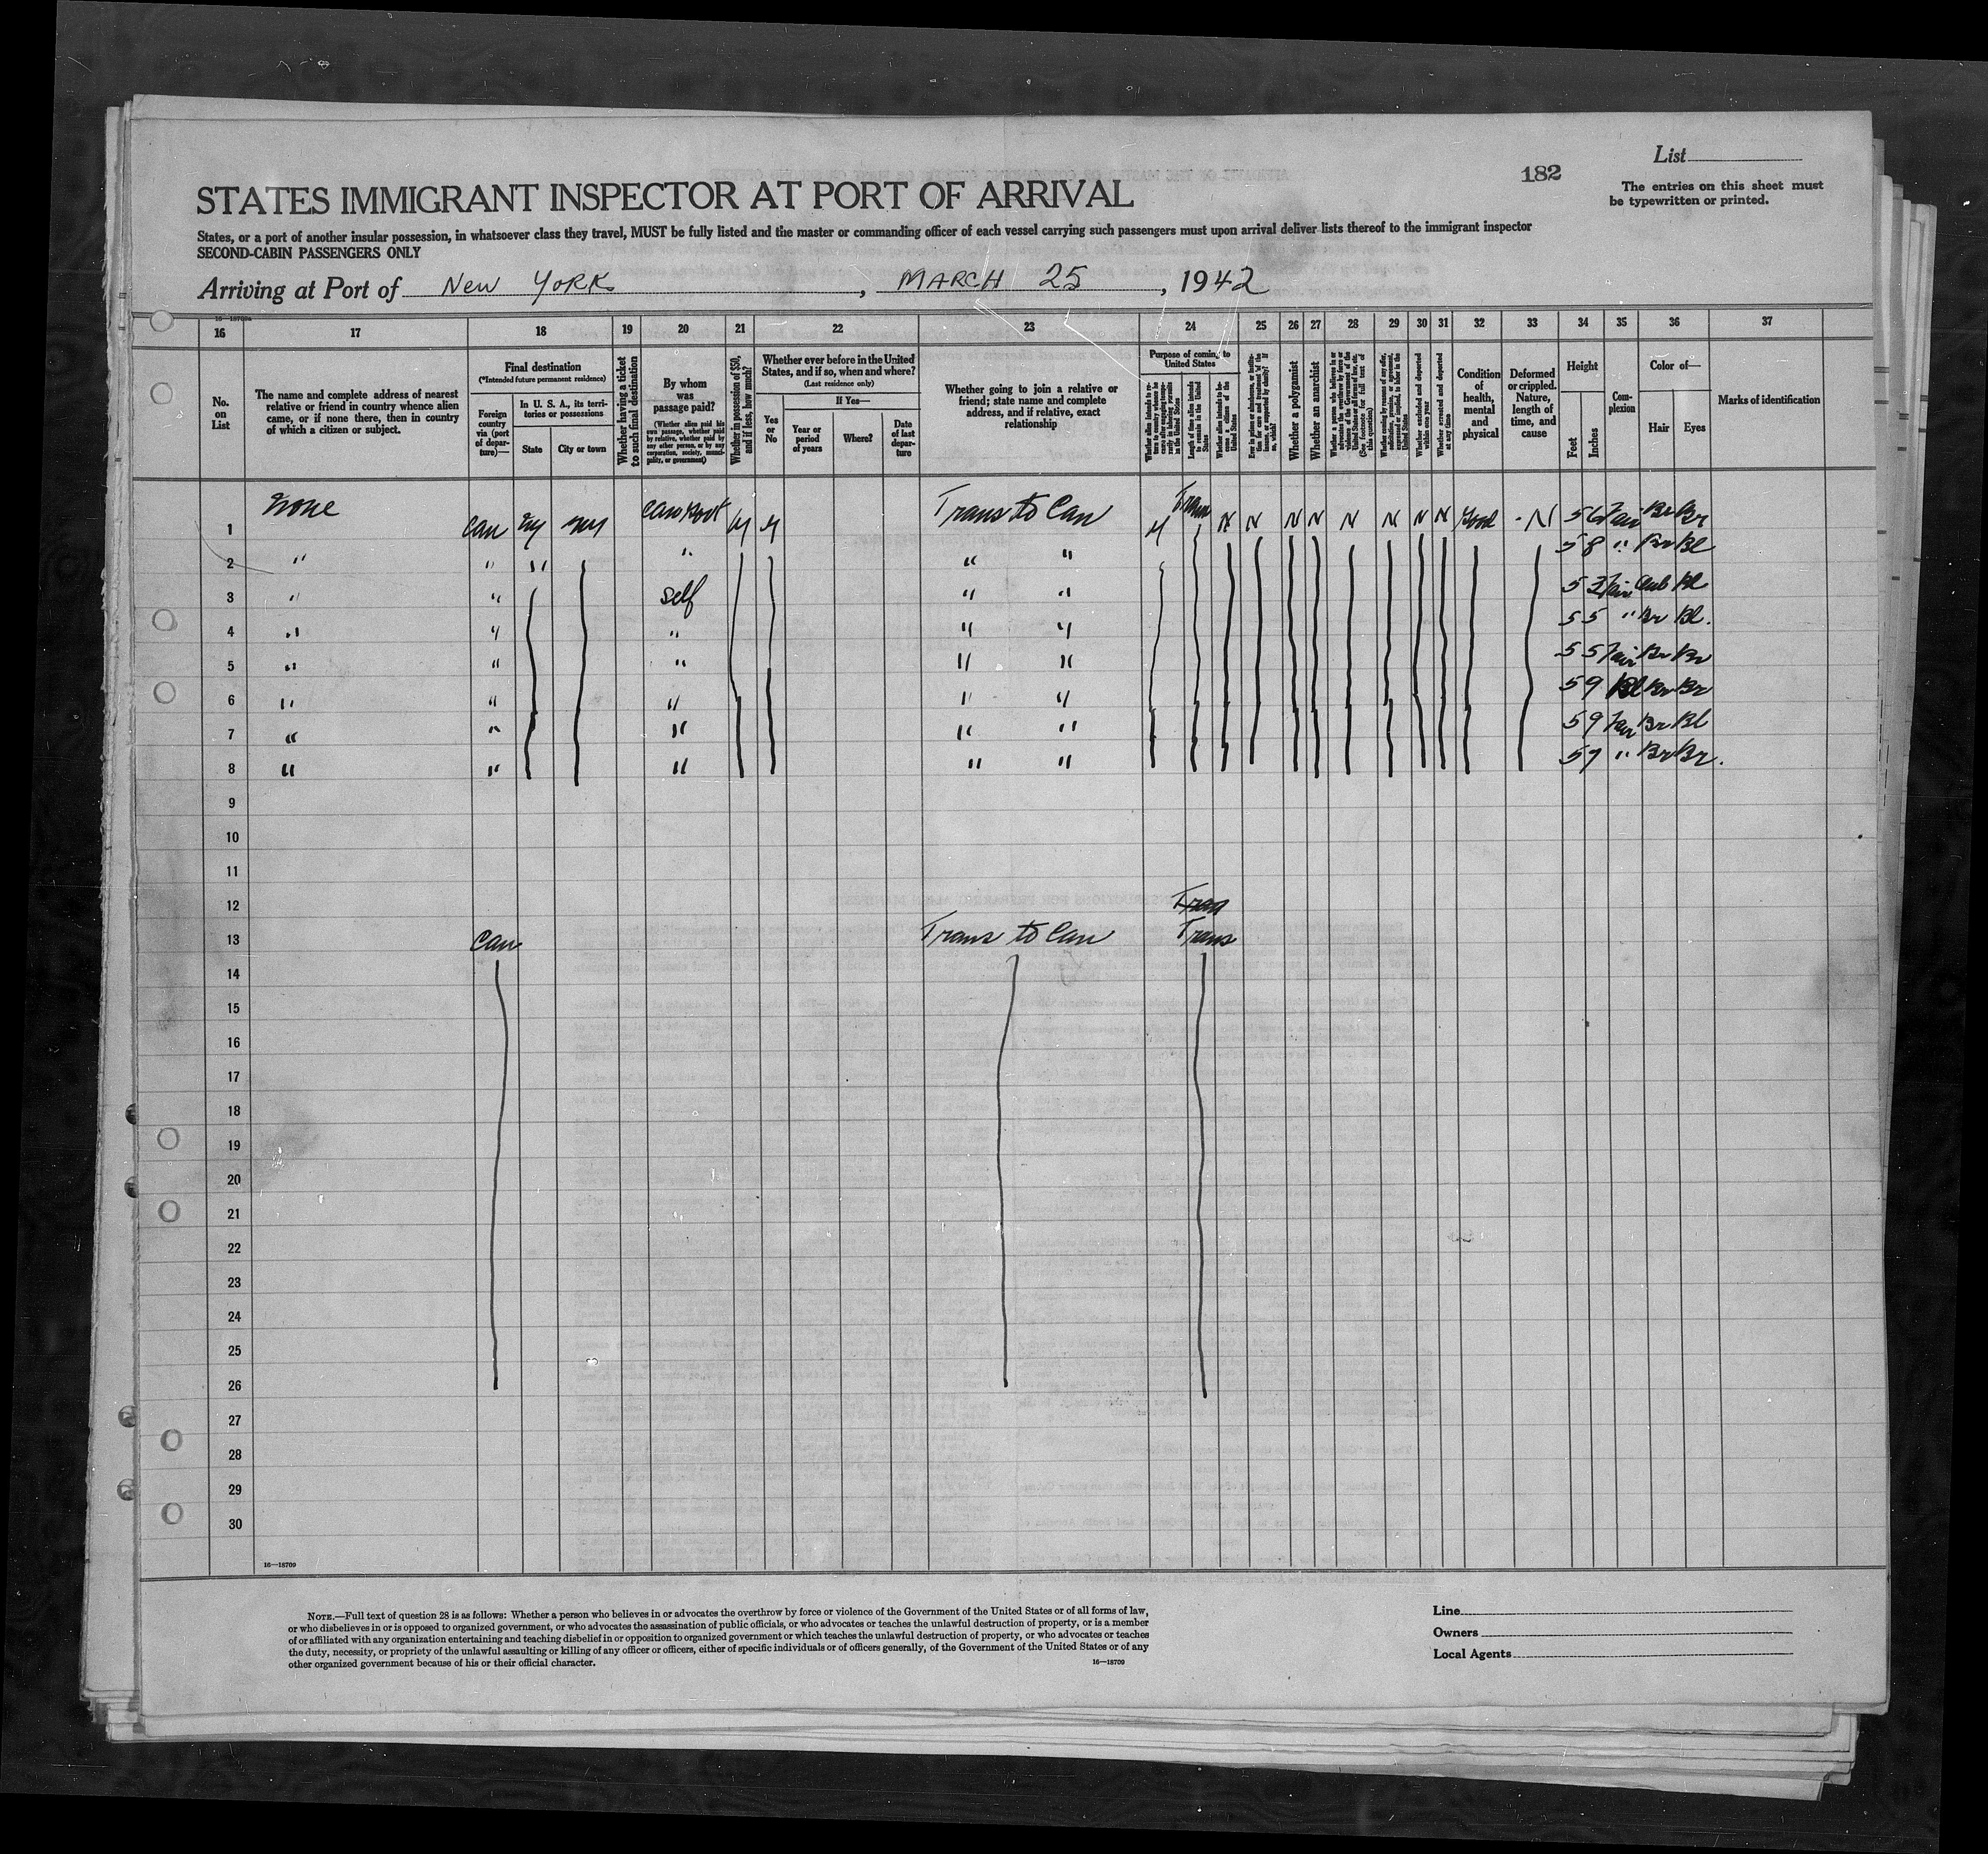 182
List
The entries on this sheet must
be typewritten or printed.
STATES IMMIGRANT INSPECTOR AT PORT OF ARRIVAL
States, or a port of another insular possession, in whatsoever class they travel, MUST be fully listed and the master or commanding officer of each vessel carrying such passengers must upon arrival deliver lists thereof to the immigrant inspector
SECOND-CABIN PASSENGERS ONLY
Arriving at Port of New York, MARCH 25, 1942
16 17 18 19 20 21 22 23 24 25 26 27 28 29 30 31 32 33 34 35 36 37
No. on List
The name and complete address of nearest
relative or friend in country whence alien
came, or if none there, then in country
of which a citizen or subject.
Final destination
(*Intended future permanent residence)
Foreign country via (port of departure)—
In U. S. A., its territories or possessions
State
City or town
Whether having a ticket to such final destination
By whom was passage paid?
(Whether alien paid his own passage, whether paid by relative, whether paid by any other person, or by any corporation, society, municipality, or government)
Whether in possession of $50, and if less, how much?
Whether ever before in the United
States, and if so, when and where?
(Last residence only)
Yes or No
If Yes—
Year or period of years
Where?
Date of last departure
Whether going to join a relative or
friend; state name and complete
address, and if relative, exact
relationship
Purpose of coming to United States
Length of time alien intends to remain in the United States
Whether alien intends to become a citizen of the United States
Whether a polygamist
Whether an anarchist
Whether excluded and deported within one year
Whether arrested and deported at any time
Condition of health, mental and physical
Deformed or crippled. Nature, length of time, and cause
Height
Feet
Inches
Complexion
Color of—
Hair
Eyes
Marks of identification
1 None Can ny ny Y Y Trans to Can Y Trans N N N N N N N N Good N 5 6 Fair Br Br
2 " " " " " " 5 8 " Br Bl
3 " " self " " 5 Fair Aub Bl
4 " " " " " 5 5 " Br Bl.
5 " " " " " 5 5 Fair Br Br
6 " " " " " 5 9 Br Br
7 " " " " " 5 9 Fair Br Bl
8 " " " " " 5 7 " Br Br.
9
10
11
12 Tran
13 Can Trans to Can Trans
14
15
16
17
18
19
20
21
22
23
24
25
26
27
28
29
30
16—18709
NOTE.—Full text of question 28 is as follows: Whether a person who believes in or advocates the overthrow by force or violence of the Government of the United States or of all forms of law,
or who disbelieves in or is opposed to organized government, or who advocates the assassination of public officials, or who advocates or teaches the unlawful destruction of property, or is a member
of or affiliated with any organization entertaining and teaching disbelief in or opposition to organized government or which teaches the unlawful destruction of property, or who advocates or teaches
the duty, necessity, or propriety of the unlawful assaulting or killing of any officer or officers, either of specific individuals or of officers generally, of the Government of the United States or of any
other organized government because of his or their official character.
16—18709
Line
Owners
Local Agents